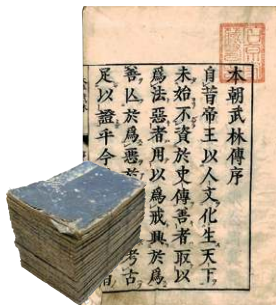 本朝武林傳序
自昔帝王以人文化生天下
未始不資於史傳善者取以
爲法惡者用以爲戒興於爲
善亾於爲惡於 考古
足以證乎今